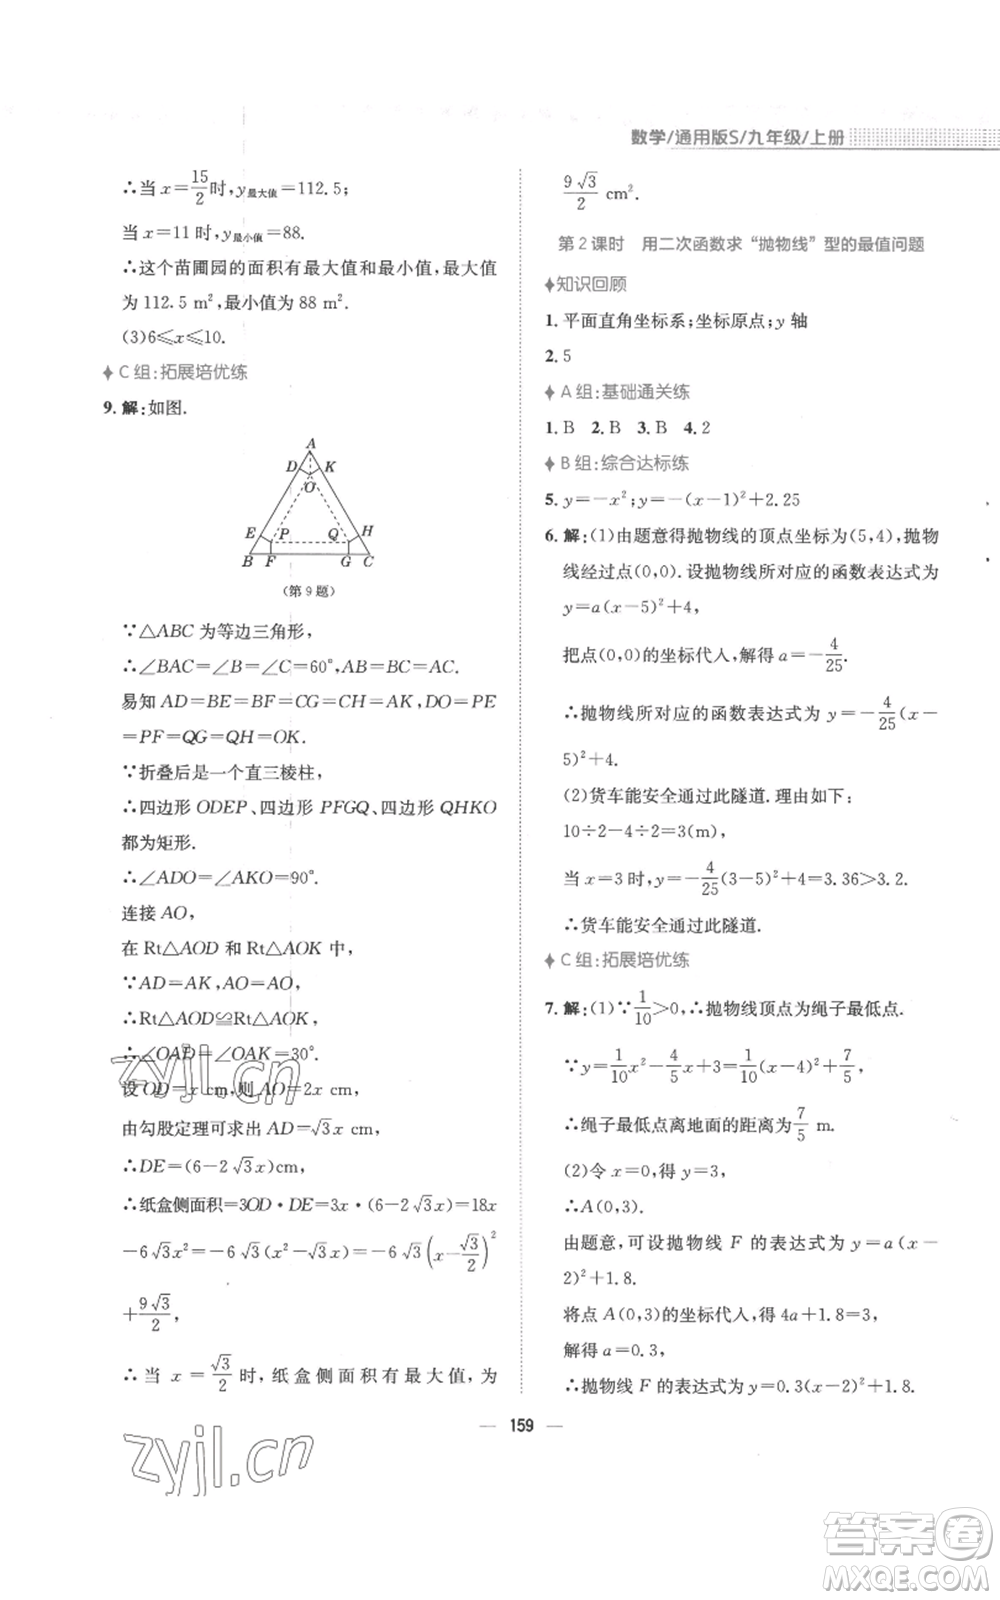 数学/通用版S/九年级/上册
∴当 x=15/2时,y最大值=112.5;
当 x=11 时,y最小值=88.
∴这个苗圃园的面积有最大值和最小值,最大值
为 112.5 m²,最小值为 88 m².
(3)6≤x≤10.
C 组:拓展培优练
9. 解:如图.
A
D K
O
E P Q H
B F G C
(第 9 题)
∵△ABC 为等边三角形,
∴∠BAC=∠B=∠C=60°,AB=BC=AC.
易知 AD=BE=BF=CG=CH=AK,DO=PE
=PF=QG=QH=OK.
∵折叠后是一个直三棱柱,
∴四边形 ODEP、四边形 PFGQ、四边形 QHKO
都为矩形.
∴∠ADO=∠AKO=90°.
连接 AO,
在 Rt△AOD 和 Rt△AOK 中,
∵AD=AK,AO=AO,
∴Rt△AOD≌Rt△AOK.
∴∠OAD=∠OAK=30°.
设 OD=x cm,则 AO=2x cm,
由勾股定理可求出 AD=√3x cm,
∴DE=(6-2√3x)cm,
∴纸盒侧面积=3OD·DE=3x·(6-2√3x)=18x
-6√3x²=-6√3(x²-√3x)=-6√3(x-√3/2)²
+9√3/2,
∴当 x=√3/2 时,纸盒侧面积有最大值,为
9√3/2 cm².
第 2 课时 用二次函数求“抛物线”型的最值问题
知识回顾
1. 平面直角坐标系;坐标原点;y 轴
2. 5
A 组:基础通关练
1. B 2. B 3. B 4. 2
B 组:综合达标练
5. y=-x²;y=-(x-1)²+2.25
6. 解:(1)由题意得抛物线的顶点坐标为(5,4),抛物
线经过点(0,0).设抛物线所对应的函数表达式为
y=a(x-5)²+4,
把点(0,0)的坐标代人,解得 a=-4/25.
∴抛物线所对应的函数表达式为 y=-4/25(x-
5)²+4.
(2)货车能安全通过此隧道.理由如下:
10÷2-4÷2=3(m),
当 x=3 时,y=-4/25(3-5)²+4=3.36>3.2.
∴货车能安全通过此隧道.
C 组:拓展培优练
7. 解:(1)∵1/10>0,∴抛物线顶点为绳子最低点.
∵y=1/10x²-4/5x+3=1/10(x-4)²+7/5,
∴绳子最低点离地面的距离为7/5 m.
(2)令 x=0,得 y=3,
∴A(0,3).
由题意,可设抛物线 F 的表达式为 y=a(x-
2)²+1.8.
将点 A(0,3)的坐标代人,得 4a+1.8=3,
解得 a=0.3,
∴抛物线 F 的表达式为 y=0.3(x-2)²+1.8.
159
zyjl.cn
zyjl.cn
答案圈
MXQE.COM